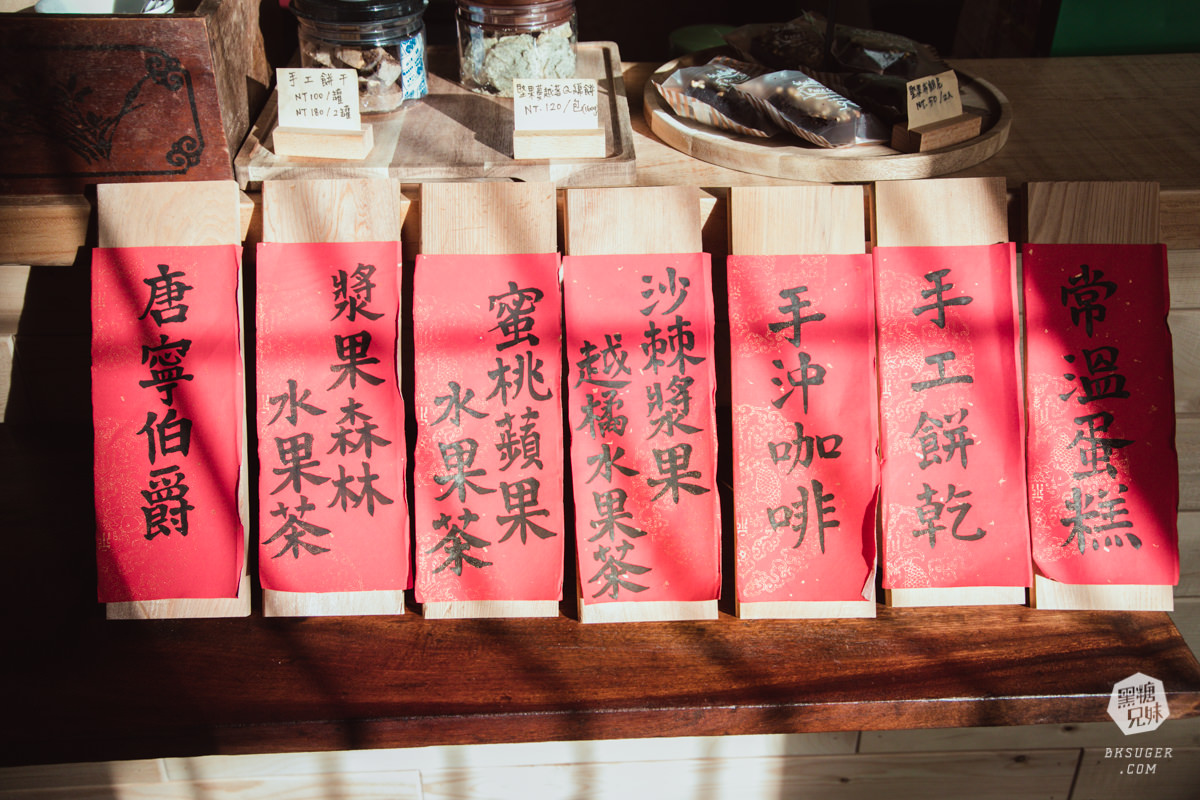 手工餅干
NT100/罐
NT180/2罐
NT.120/包
NT.50/2入
唐寧伯爵
漿果森林
水果茶
蜜桃蘋果
水果茶
沙棘漿果
越橘水果茶
手沖咖啡
手工餅乾
常溫蛋糕
黑糖
兄妹
BKSUGER
.COM